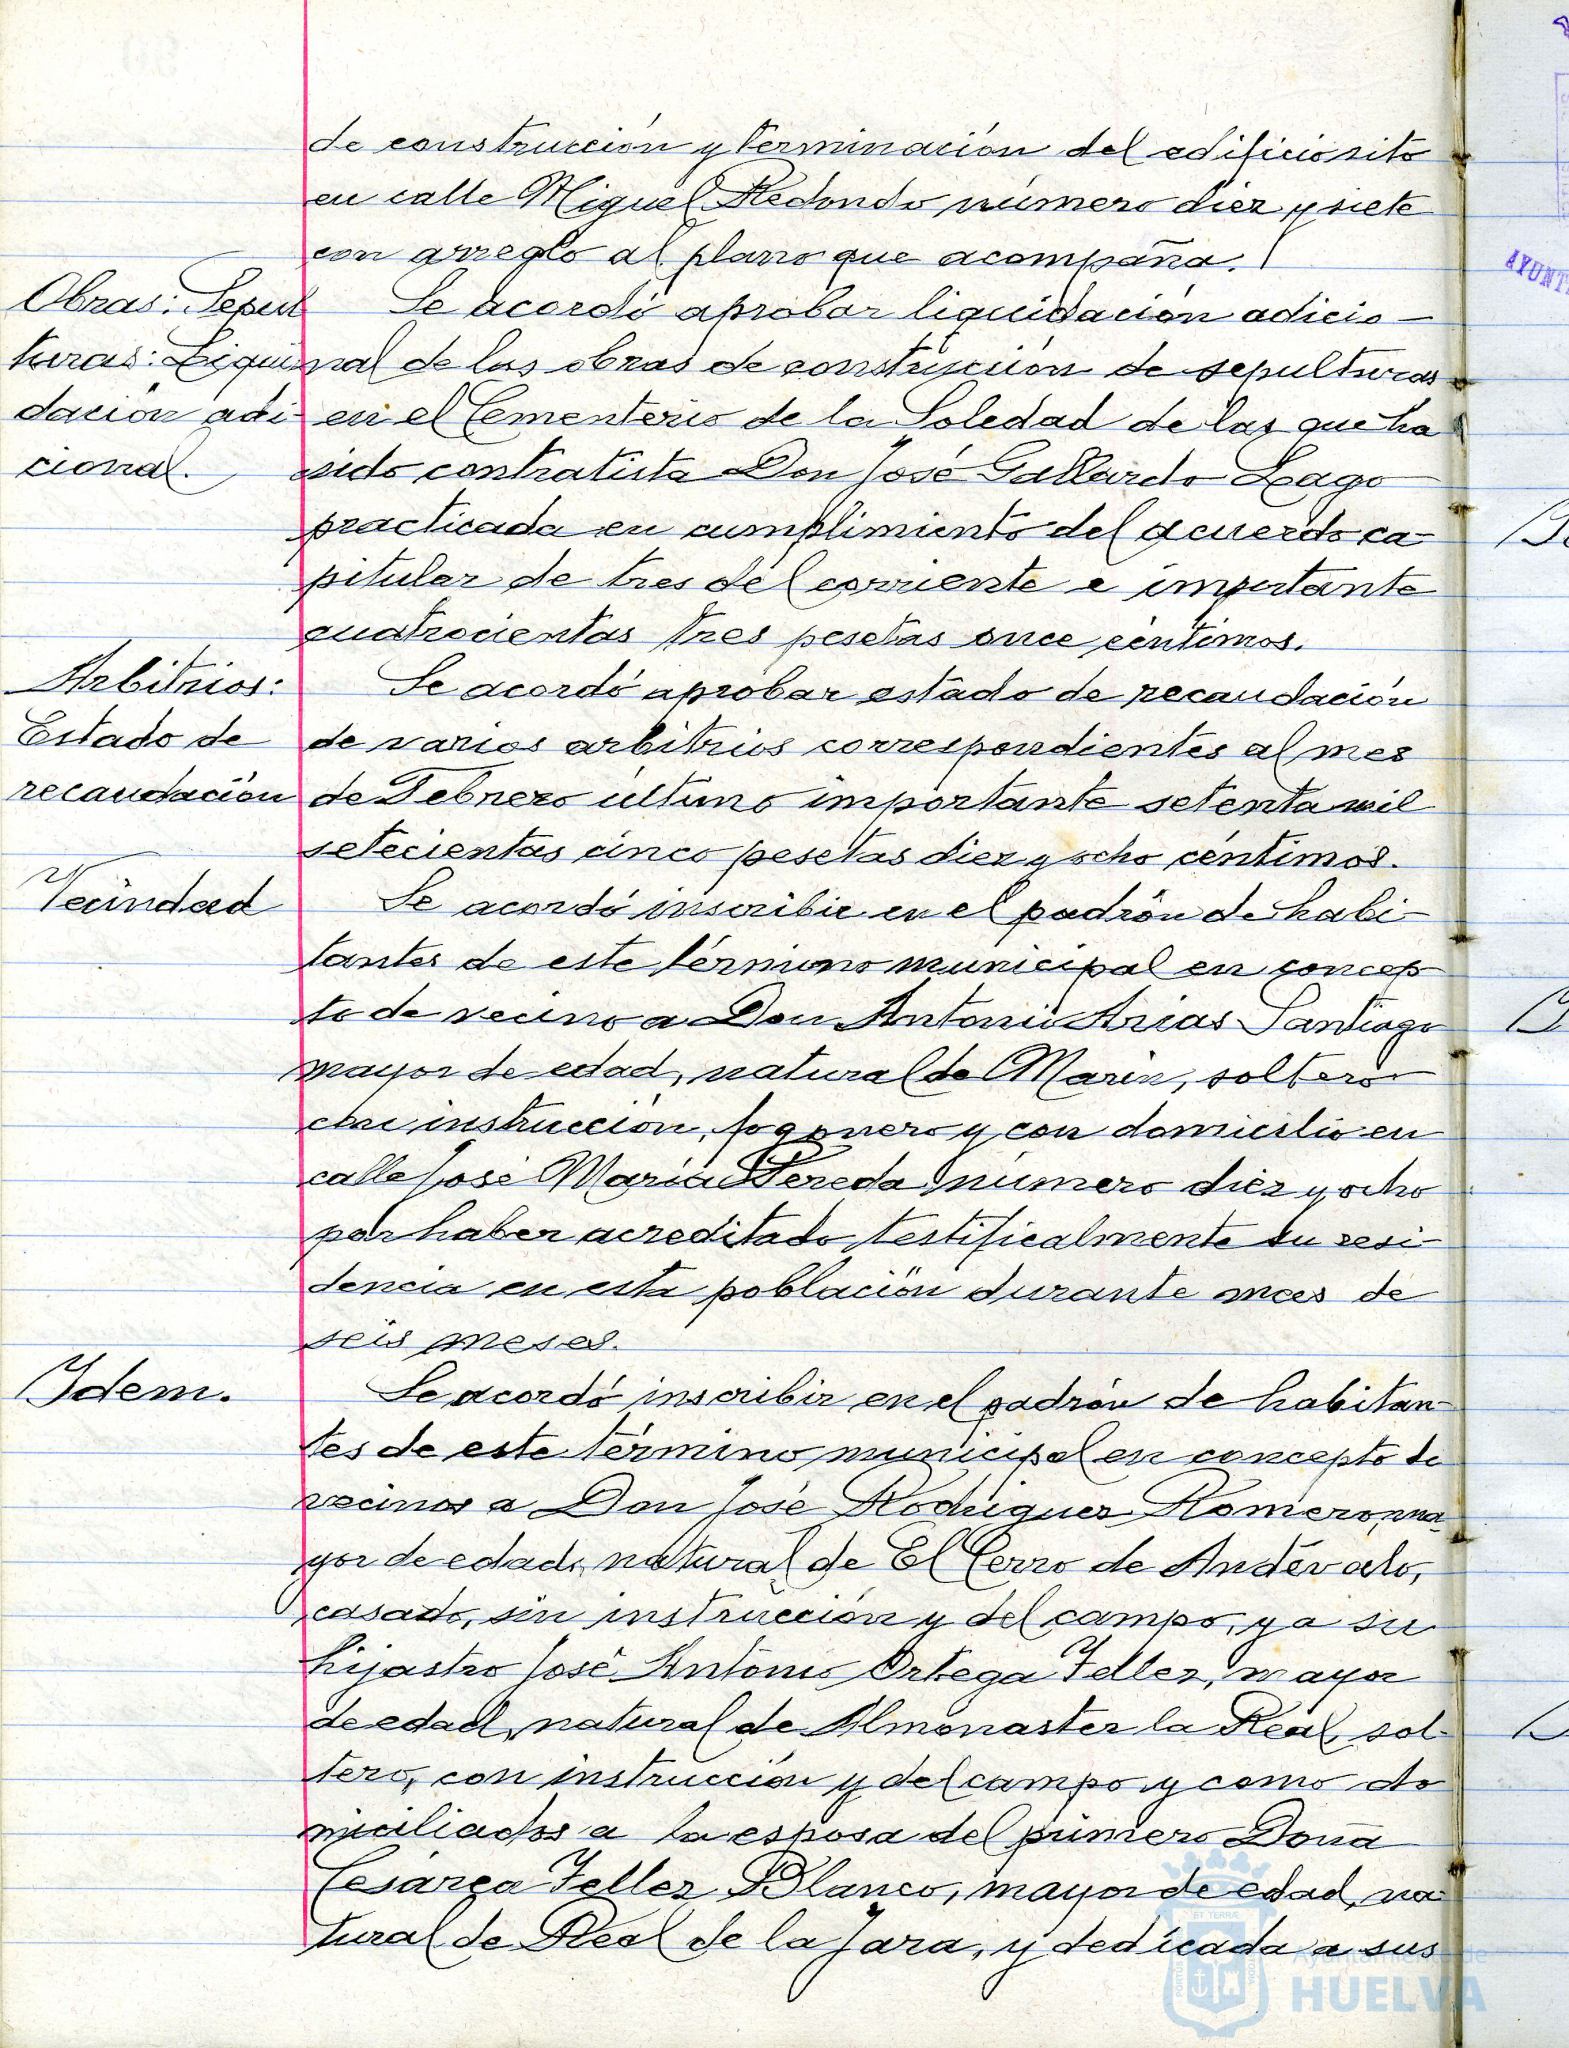 de construcción y terminación del edificio sito
en calle Miguel Redondo número diez y siete
con arreglo al plano que acompaña.
Obras: Sepul
turas: Liqui
dación adi
cional.
Se acordó aprobar liquidación adicio-
nal de las obras de construcción de sepulturas
en el Cementerio de la Soledad de las que ha
sido contratista Don José Gallardo Lago
practicada en cumplimiento del acuerdo ca-
pitular de tres del corriente e importante
cuatrocientas tres pesetas once céntimos.
Arbitrios:
Estado de
recaudación
Se acordó aprobar estado de recaudación
de varios arbitrios correspondientes al mes
de Febrero último importante setenta mil
setecientas cinco pesetas diez y ocho céntimos.
Vecindad
Se acordó inscribir en el padrón de habi-
tantes de este término municipal en concep-
to de vecino a Don Antonio Arias Santiago
mayor de edad, natural de Marín, soltero
con instrucción, fogonero y con domicilio en
calle José María Pereda número diez y ocho
por haber acreditado testificalmente su resi-
dencia en esta población durante mas de
seis meses.
Idem.
Se acordó inscribir en el padrón de habitan-
tes de este término municipal en concepto de
vecinos a Don José Rodríguez Romero, ma-
yor de edad, natural de El Cerro de Andévalo,
casado, sin instrucción y del campo, y a su
hijastro José Antonio Ortega Tellez, mayor
de edad, natural de Almonaster la Real, sol-
tero, con instrucción y del campo y como do
miciliados a la esposa del primero Doña
Cesárea Tellez Blanco, mayor de edad, na
tural de Real de la Jara, y dedicada a sus
AYUNT
Ayuntamiento de
HUELVA